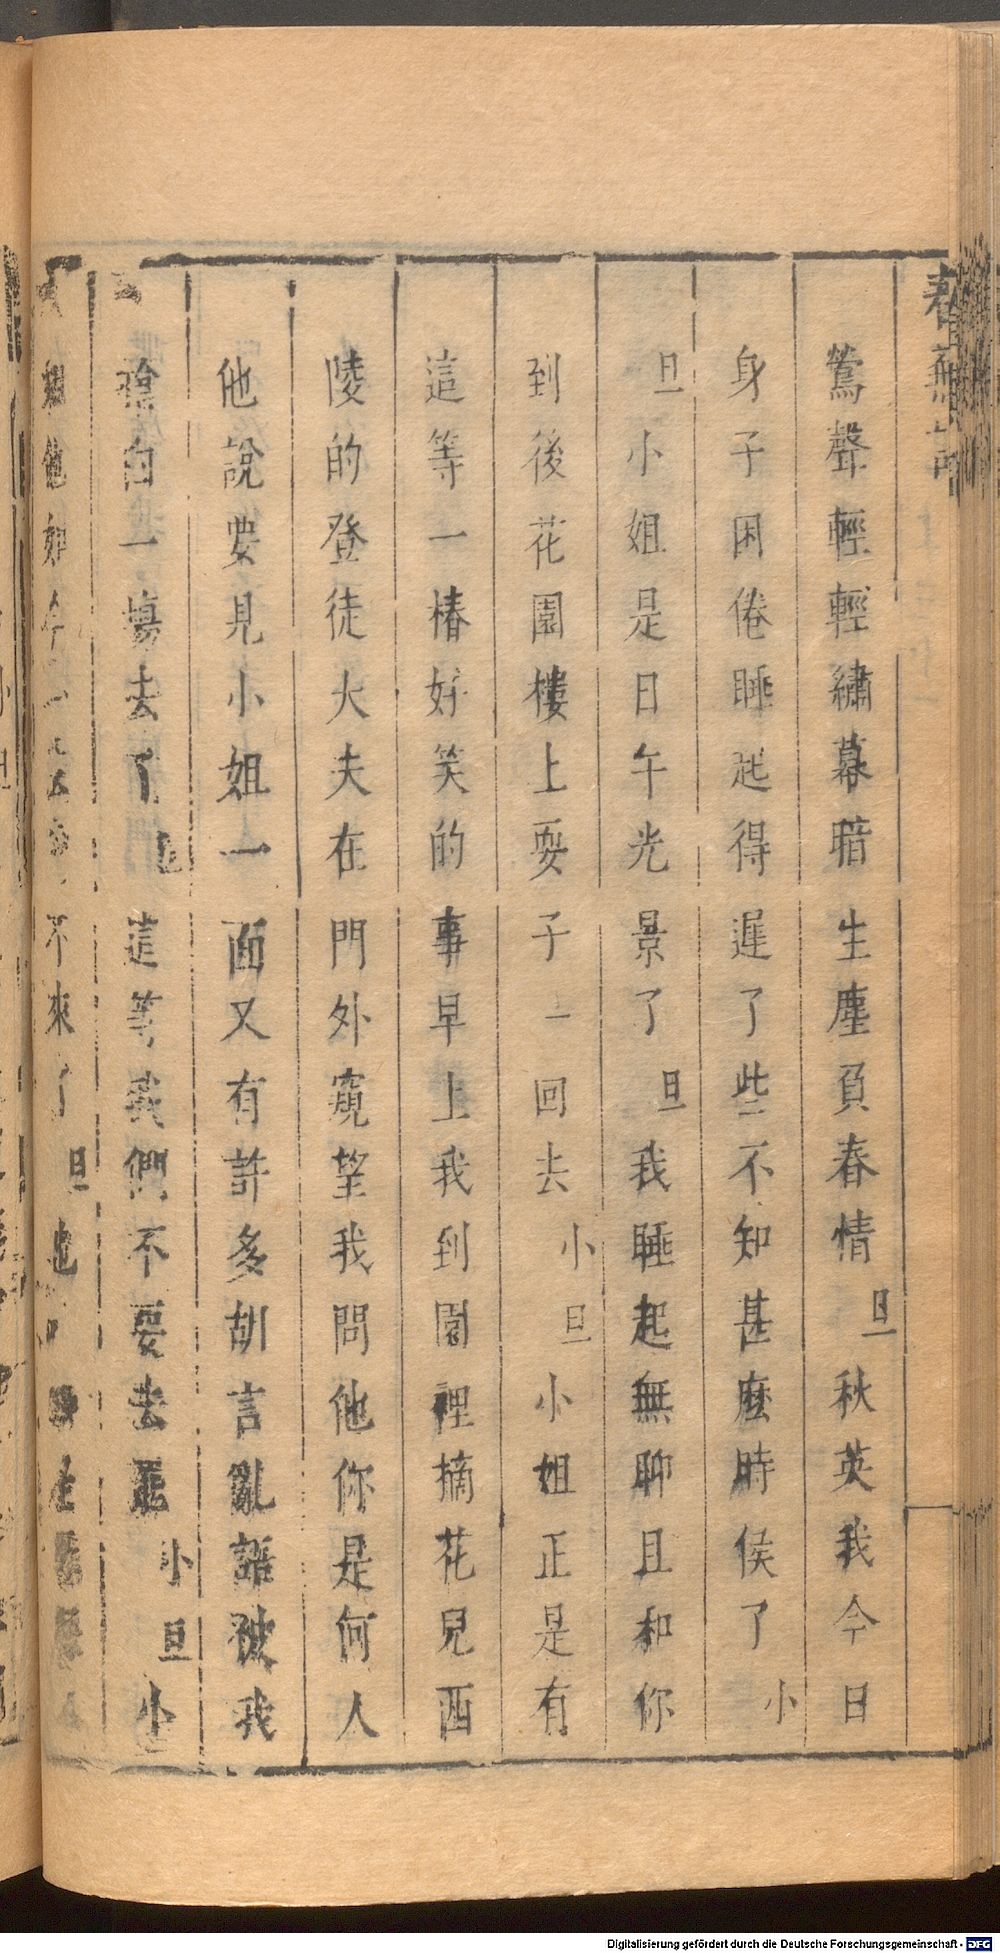 春蕪記
鶯聲輕輕繡幕暗生塵負春情 旦 秋英我今日
身子困倦睡起得遲了些不知甚麽時侯了 小
旦 小姐是日午光景了 旦 我睡起無聊且和你
到後花園樓上耍子一回去 小旦 小姐正是有
這等一樁好笑的事早上我到園裡摘花兒西
陵的登徒大夫在門外窺望我問他你是何人
他說要見小姐一面又有許多胡言亂語被我
搶白一場去了 旦 這等我們不要去罷 小旦 小
姐他如今 不來了 旦
Digitalisierung gefördert durch die Deutsche Forschungsgemeinschaft - DFG